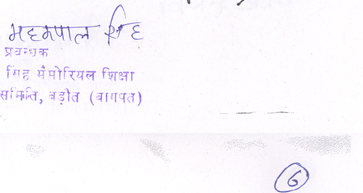 महक्मपाल सिंह
प्रबन्धक
सिंह मैमोरियल शिक्षा
समिति, बड़ौत (बागपत)
6